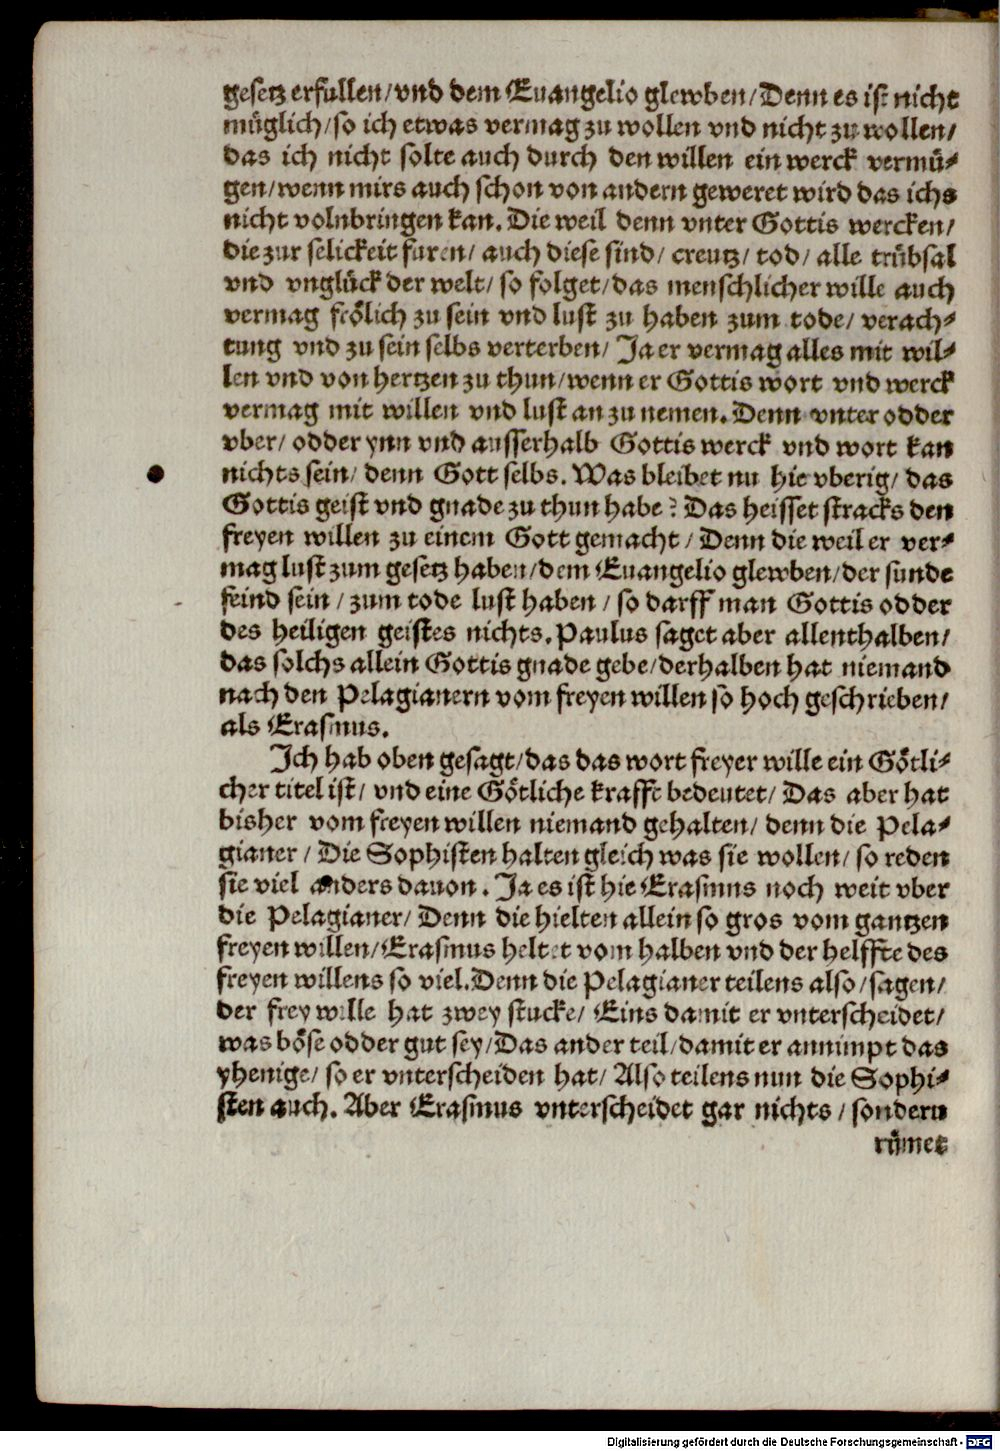 gesetz erfullen/vnd dem Euangelio glewben/Denn es ist nicht
müglich/so ich etwas vermag zu wollen vnd nicht zu wollen/
das ich nicht solte auch durch den willen ein werck vermü-
gen/wenn mirs auch schon von andern geweret wird das ichs
nicht volnbringen kan. Die weil denn vnter Gottis wercken/
die zur selickeit furen/ auch diese sind/ creutz/ tod/ alle trübsal
vnd vnglück der welt/ so folget/das menschlicher wille auch
vermag frölich zu sein vnd lust zu haben zum tode/ verach-
tung vnd zu sein selbs verterben/ Ja er vermag alles mit wil-
len vnd von hertzen zu thun/wenn er Gottis wort vnd werck
vermag mit willen vnd lust an zu nemen. Denn vnter odder
vber/ odder ynn vnd ausserhalb Gottis werck vnd wort kan
nichts sein/ denn Gott selbs. Was bleibet nu hie vberig/ das
Gottis geist vnd gnade zu thun habe? Das heisset stracks den
freyen willen zu einem Gott gemacht/ Denn die weil er ver-
mag lust zum gesetz haben/dem Euangelio glewben/der sunde
feind sein/ zum tode lust haben/ so darff man Gottis odder
des heiligen geistes nichts. Paulus saget aber allenthalben/
das solchs allein Gottis gnade gebe/derhalben hat niemand
nach den Pelagianern vom freyen willen so hoch geschrieben/
als Erasmus.
Ich hab oben gesagt/das das wort freyer wille ein Götli-
cher titel ist/ vnd eine Götliche krafft bedeutet/ Das aber hat
bisher vom freyen willen niemand gehalten/ denn die Pela-
gianer/ Die Sophisten halten gleich was sie wollen/ so reden
sie viel anders dauon. Ja es ist hie Erasmus noch weit vber
die Pelagianer/ Denn die hielten allein so gros vom gantzen
freyen willen/Erasmus heltet vom halben vnd der helffte des
freyen willens so viel. Denn die Pelagianer teilens also/sagen/
der frey wille hat zwey stucke/ Eins damit er vnterscheidet/
was böse odder gut sey/Das ander teil/damit er annimpt das
yhenige/ so er vnterscheiden hat/ Also teilens nun die Sophi-
sten auch. Aber Erasmus vnterscheidet gar nichts/ sondern
rümet
Digitalisierung gefördert durch die Deutsche Forschungsgemeinschaft - DFG